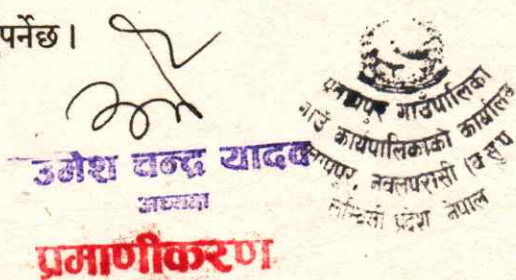 पर्नेछ ।
उमेश चन्द्र यादव
अध्यक्ष
प्रमाणीकरण
गाउँपालिका
गाउँ कार्यपालिकाको कार्यालय
नवलपरासी
प्रदेश नेपाल